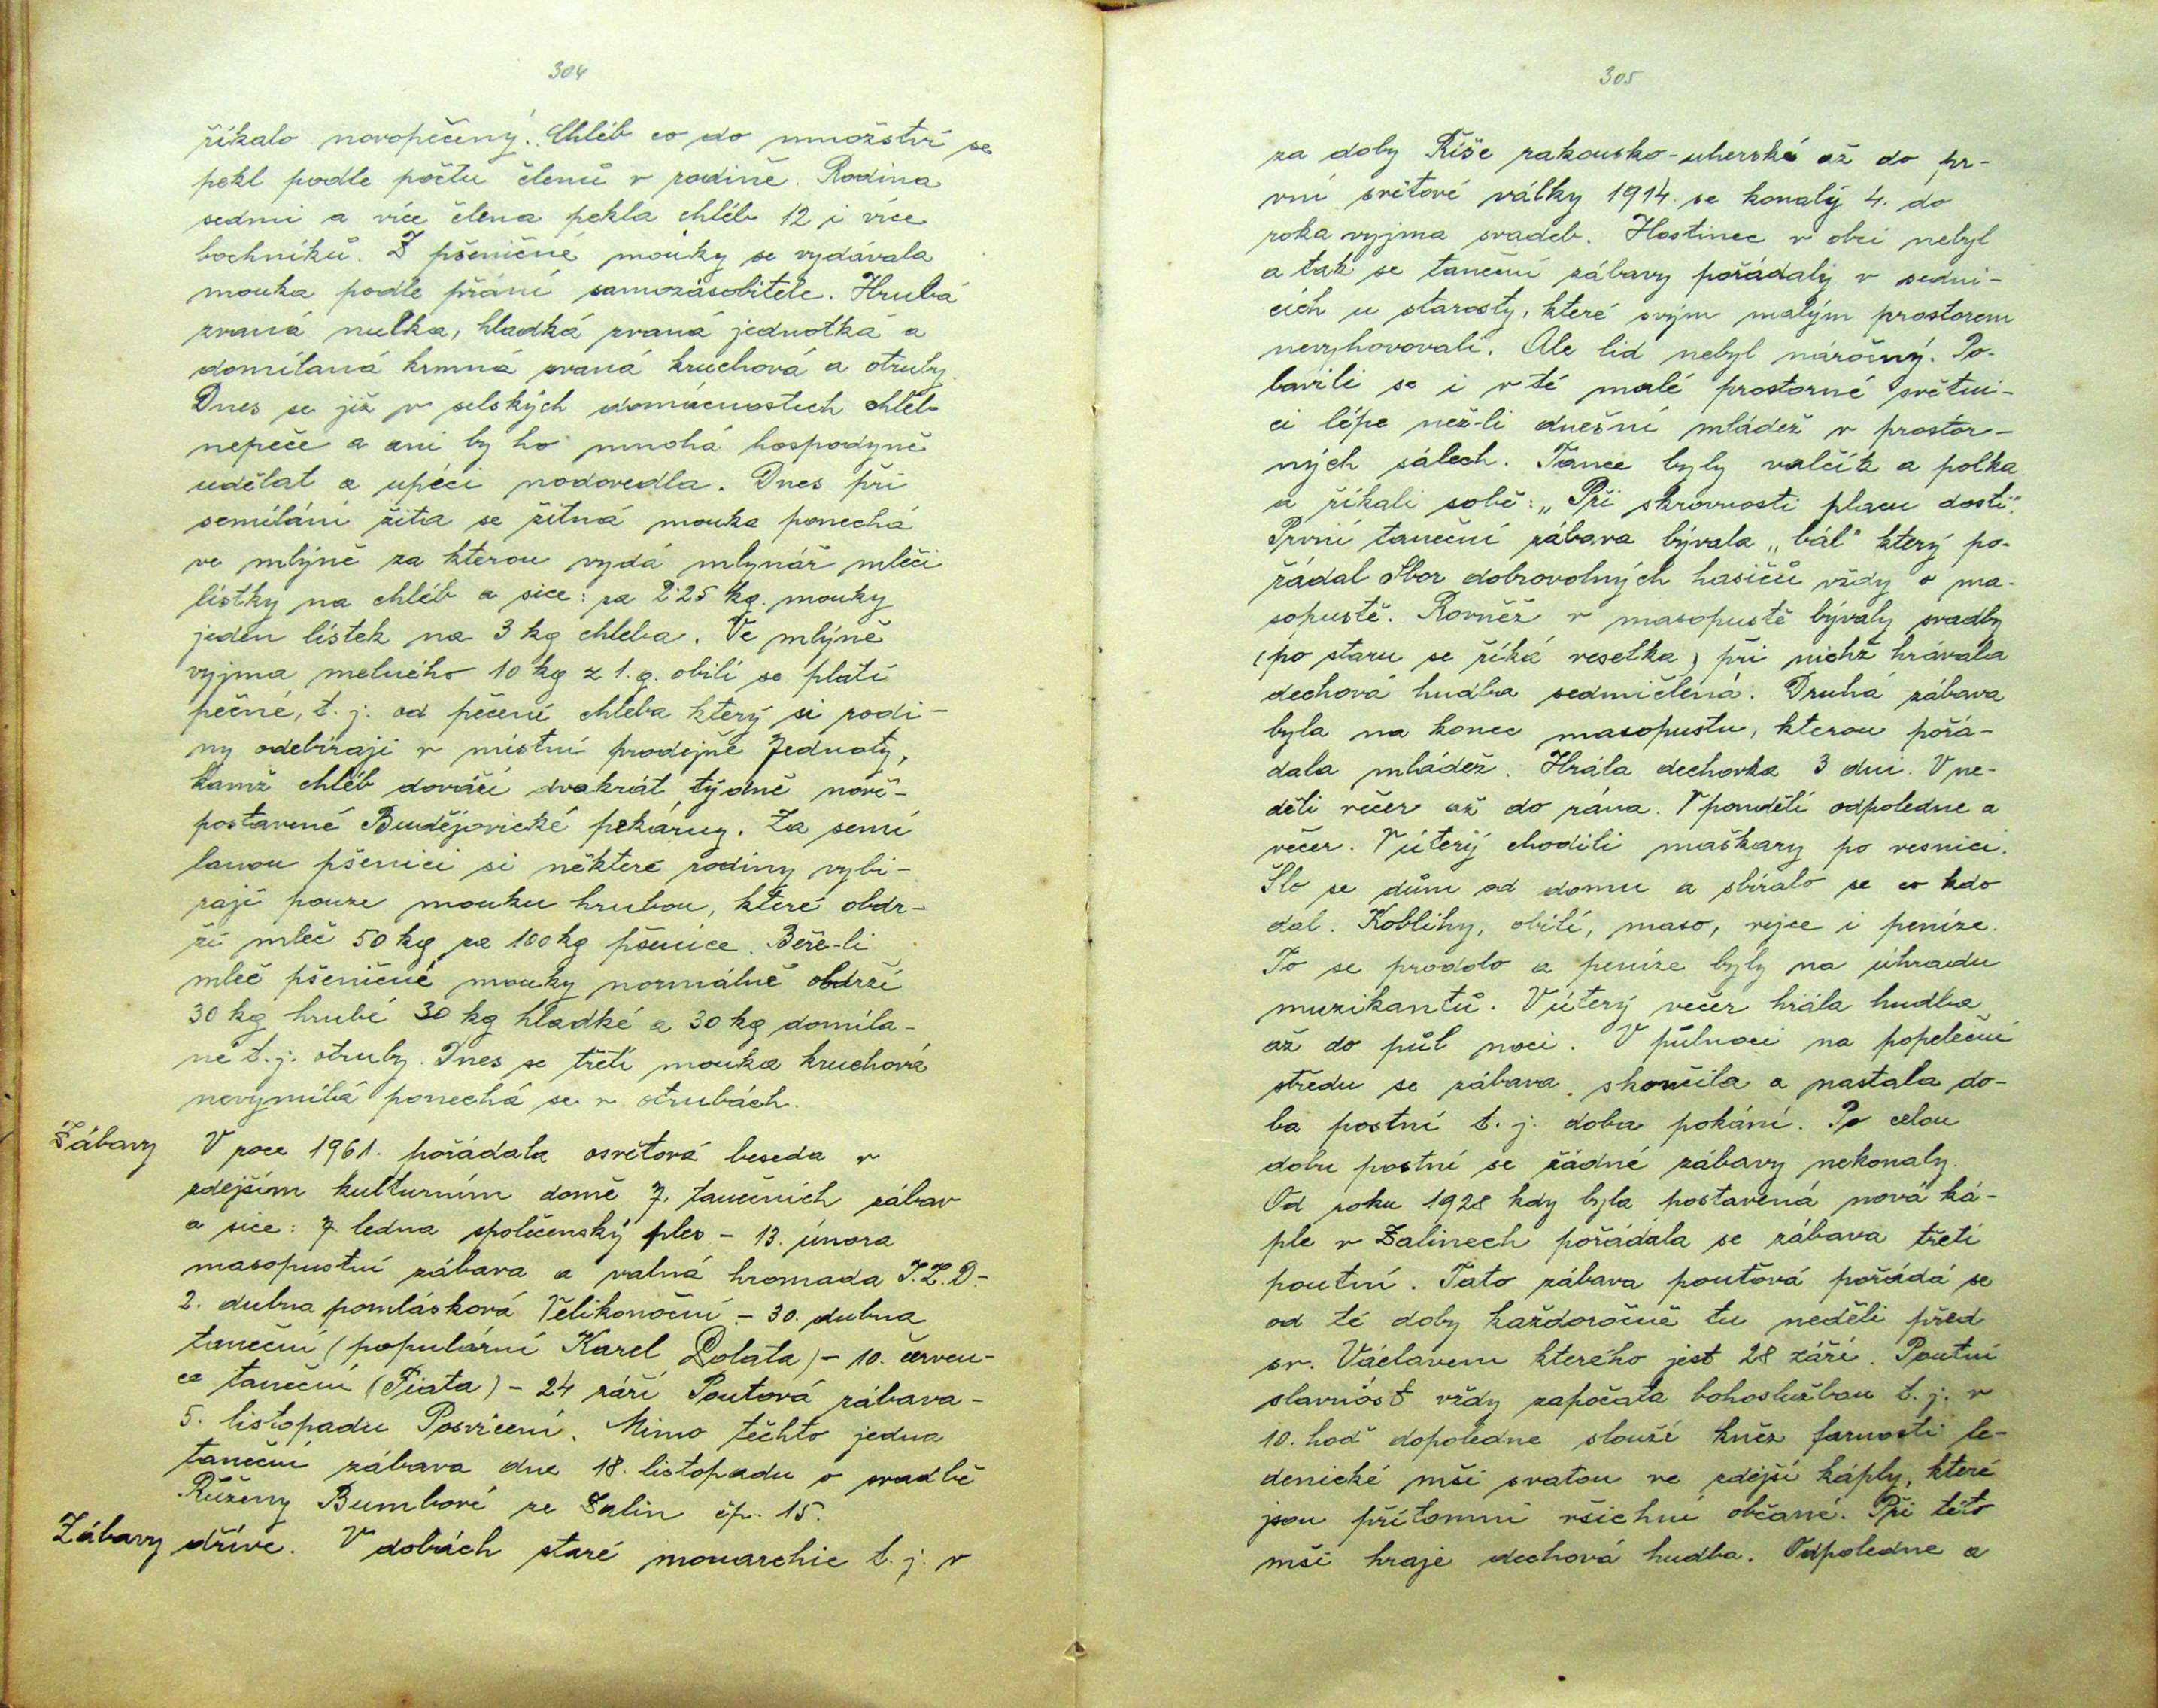 304
říkalo novopečený. Chléb co do množství se
pekl podle počtu členů v rodině. Rodina
sedmi a více člena pekla chléb 12 i více
bochníků. Z pšeničné mouky se vydávala
mouka podle přání samozásobitele. Hrubá
zvaná nulka, hladká zvaná jednotka a
domílaná krmná zvaná kruchová a otruby.
Dnes se již v selských domácnostech chléb
nepeče a ani by ho mnohá hospodyně
udělat a upéci nodovedla. Dnes při
semílání žita se žitná mouka ponechá
ve mlýně za kterou vydá mlynář mleči
lístky na chléb a sice: za 2·25 kg. mouky
jeden lístek na 3 kg chleba. Ve mlýně
vyjma melného 10 kg z 1. q. obilí se platí
pečné, t. j. od pečení chleba který si rodi-
ny odebírají v místní prodejně Jednoty,
kamž chléb dováží dvakrát týdně nově-
postavené Budějovické pekárny. Za semí
lanou pšenici si některé rodiny vybí-
rají pouze mouku hrubou, které obdr-
ží mleč 50 kg za 100 kg pšenice. Beře-li
mleč pšeničné mouky normálně obdrží
30 kg hrubé 30 kg hladké a 30 kg domíla-
né t. j. otruby. Dnes se třetí mouka kruchová
nevymílá ponechá se v otrubách.
Zábavy V roce 1961. pořádala osvětová beseda v
zdejším kulturním domě 7. tanečních zábav
a sice: 7 ledna společenský ples - 13. února
masopustní zábava a valná hromada J.Z.D.-
2. dubna pomlásková Velikonoční - 30. dubna
taneční (populární Karel Polata) - 10. červen-
ce taneční (Piata) - 24 září Poutová zábava -
5. listopadu Posvícení. Mimo těchto jedna
taneční zábava dne 18. listopadu o svadbě
Růženy Bumbové ze Zalin čp. 15.
Zábavy dříve. V dobách staré monarchie t. j. v
305
za doby Říše rakousko-uherské až do pr-
vní světové války 1914. se konalý 4. do
roka vyjma svadeb. Hostinec v obci nebyl
a tak se taneční zábavy pořádalý v sedni-
cích u starosty, které svým malým prostorem
nevyhovovali. Ale lid nebyl náročný. Po-
bavili se i v té malé prostorné světni-
ci lépe než-li dnešní mládež v prostor-
ných sálech. Tance byly valčík a polka
a říkali sobě: „Při skrovnosti placu dosti".
První taneční zábava bývala „bál" který po-
řádal Sbor dobrovolných hasičů vždy o ma-
sopustě. Rovněž v masopustě bývaly svadby
(po staru se říká veselka) při nichž hrávala
dechová hudba sedmičlená. Druhá zábava
byla na konec masopustu, kterou pořá-
dala mládež. Hrála dechovka 3 dni. V ne-
děli večer až do rána. V pondělí odpoledne a
večer. V úterý chodili maškary po vesnici.
Šlo se dům od domu a sbíralo se co kdo
dal. Koblihy, obilí, maso, vejce i peníze.
To se prodolo a peníze byly na úhradu
muzikantů. V úterý večer hrála hudba
až do půl noci. V půlnoci na popeleční
středu se zábava skončila a nastala do-
ba postní t. j. doba pokání. Po celou
dobu postní se žádné zábavy nekonaly.
Od roku 1928 kdy byla postavená nová ká-
ple v Zalinech pořádala se zábava třetí
poutní. Tato zábava pouťová pořádá se
od té doby každoročně tu neděli před
sv. Václavem kterého jest 28 září. Poutní
slavnóst vždy započata bohoslužbou t. j. v
10. hod dopoledne slouží kněz farnosti le-
denické mši svatou ve zdejší káply, které
jsou přítomni všichni občané. Při této
mši hraje dechová hudba. Odpoledne a